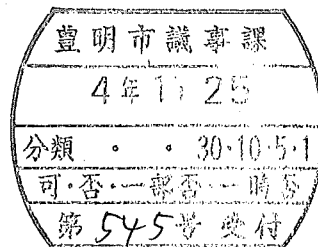 豊明市議事課
4年11 25
分類 ・ ・ 30・10・5・1
可・否・一部否・時否
第545号 受付